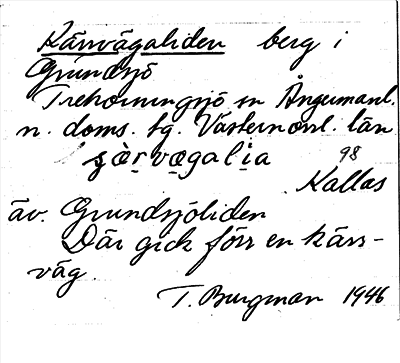 Kärrvägaliden berg i
Grundsjö
Trehörningsjö sn Ångermanl.
n. doms. tg. Västernorrl. län
98
Kallas
äv. Grundsjöliden
Där gick förr en kärr-
väg.
T. Burgman 1946